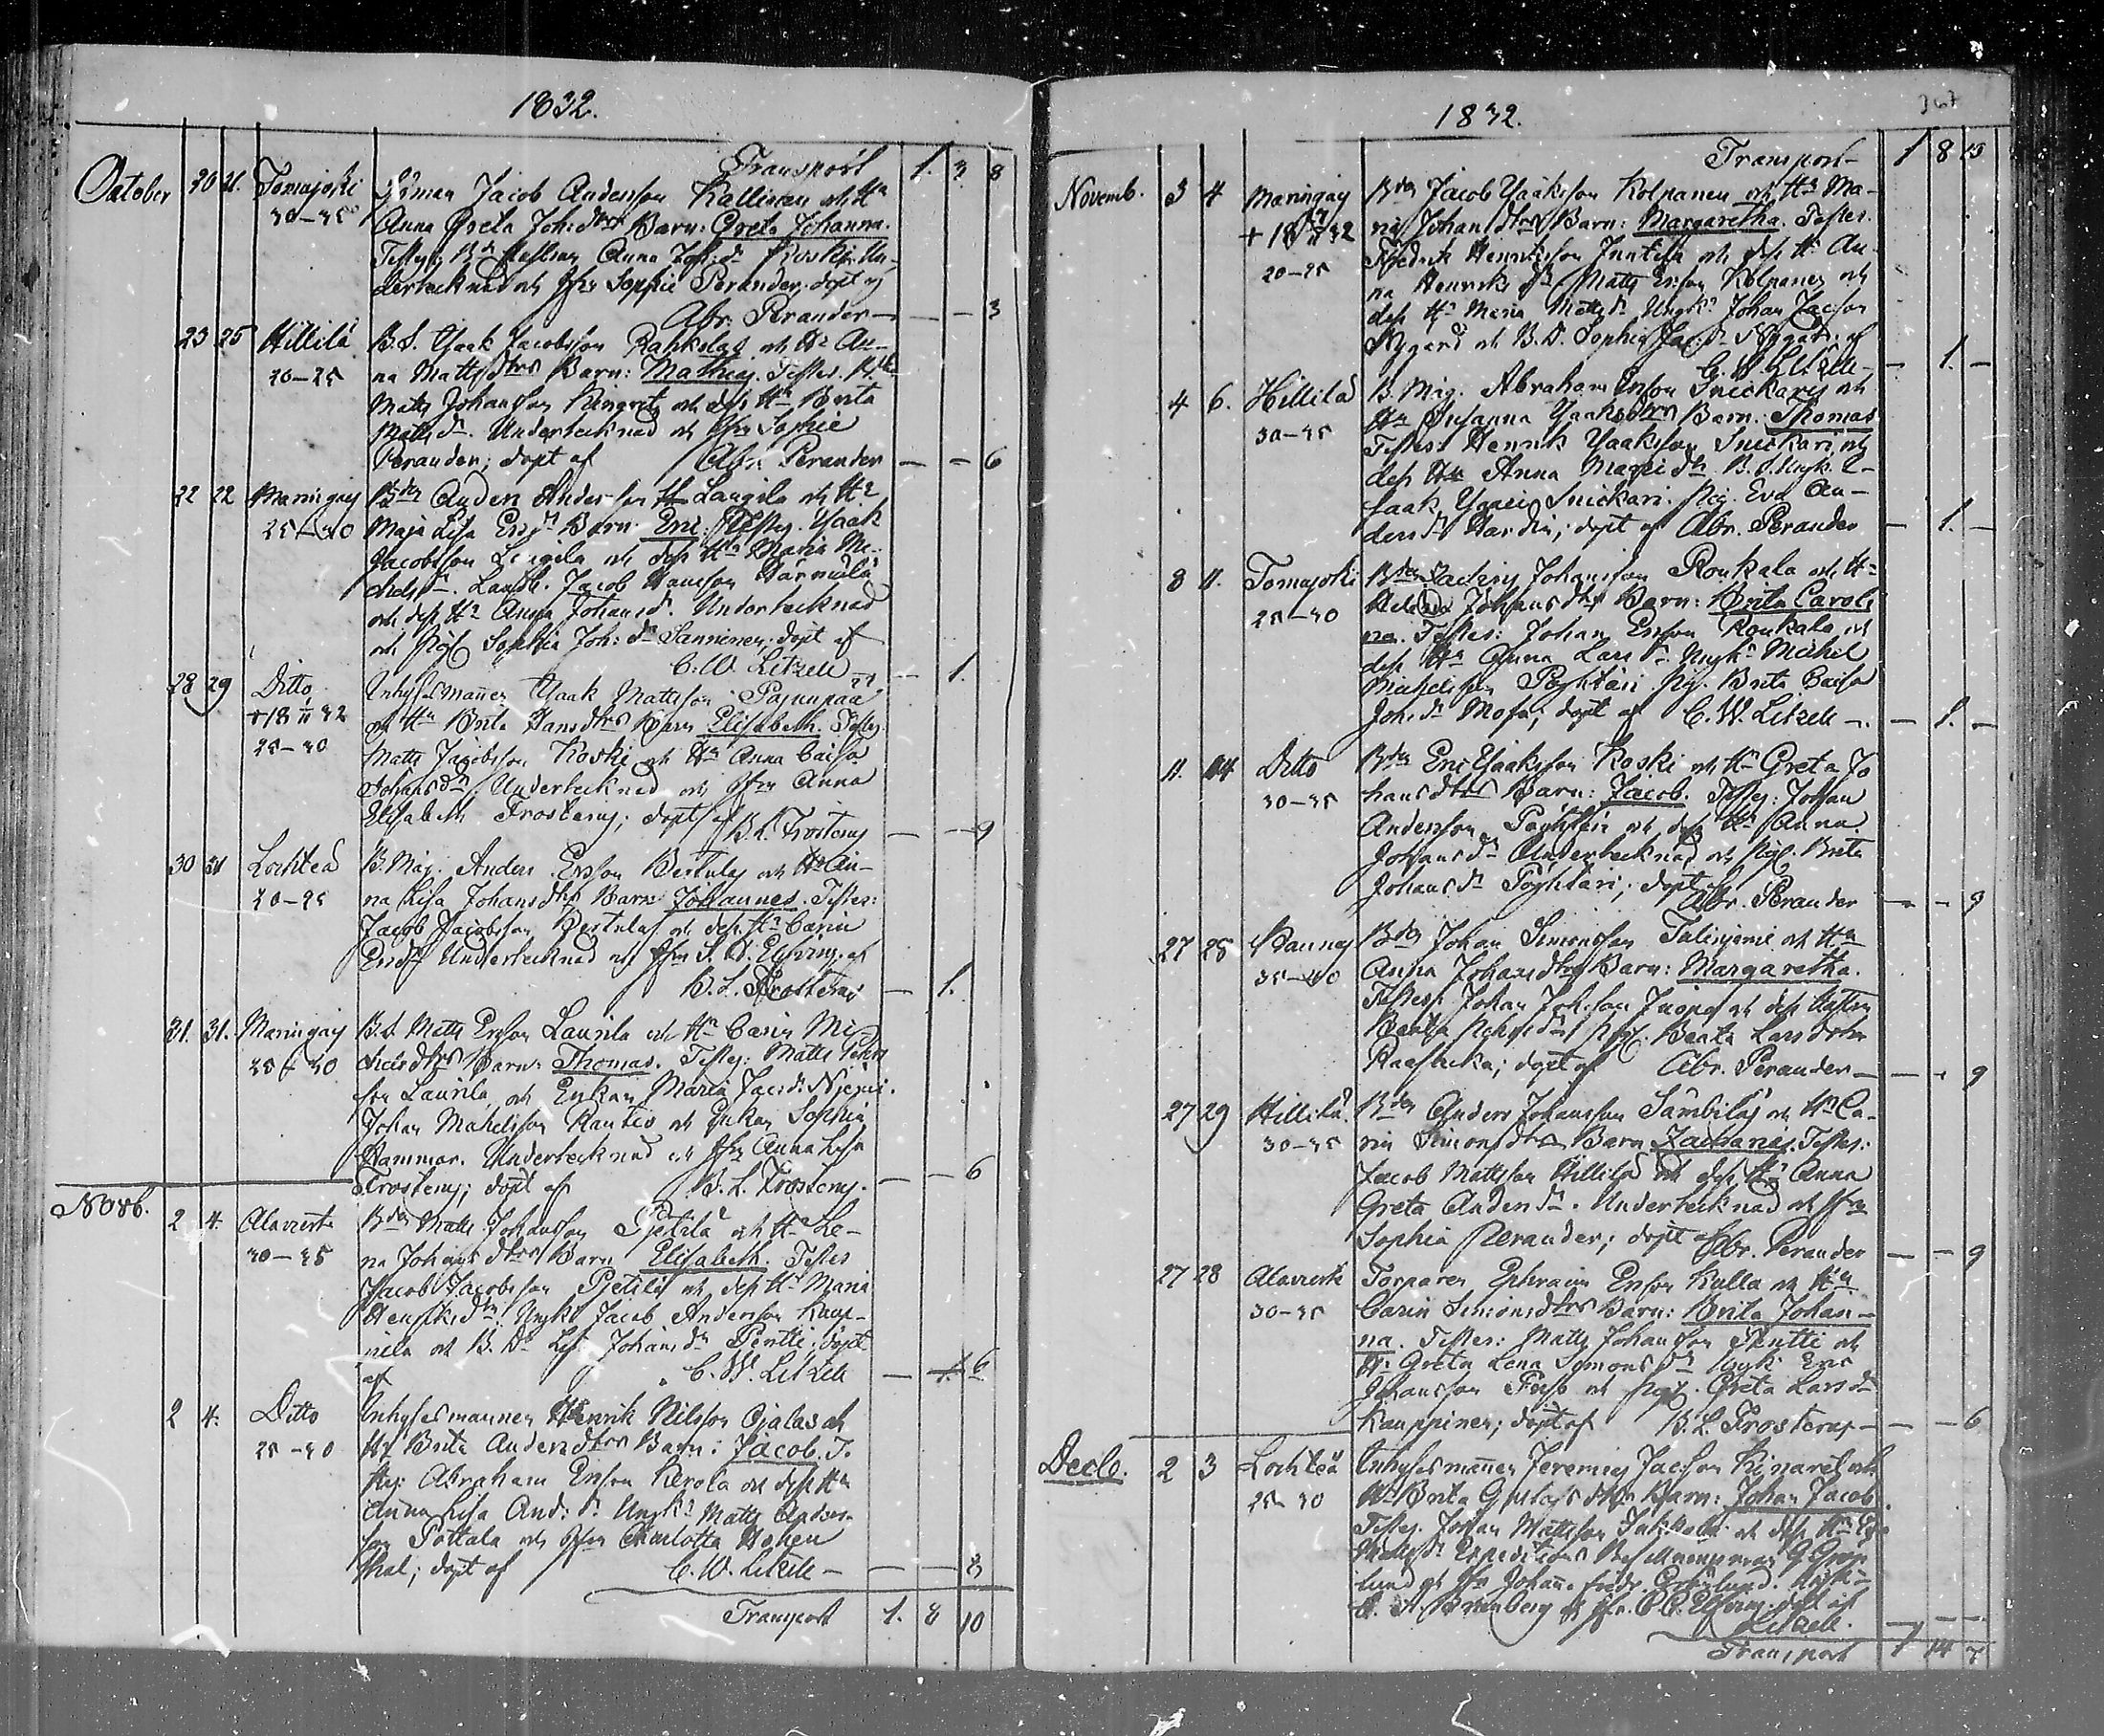 1832.
Transport 1. 3. 8
October 20 21. Tomujoki Joman Jacob Andersson Kallinen och Hu
30-35 Anna Greta Joh:dtrs Barn: Greta Johanna.
Anna Joh:dr Koski. Un-
dertecknad och Jfru Sophie Perander, döpt af
Abr. Perander — — 3
23 25 Hillilä B.S. Ysaak Jacobsson Rahkolas och Hu An-
20-25 na Mattsdtrs Barn: Mathias. Testes. Bdn
Matts Johansson Kingret och dess Hu Brita
Mattsdr. Undertecknad och Jfru Sophie
Perander; döpt af Abr. Perander — — 6
22 22 Maringais Bdn Anders Andersson Laugila och Hu
25-30 Maja Lisa Ersdr Barn: Eric. Testes. Ysaak
Jacobsson Laugila och dess Hu Maria Mi-
chelsdr. Landb. Jacob Hansson Härmälä
och dess Hu Anna Johansdr. Undertecknad
och Pig. Sophia Joh:dr Sanninen, döpt af
C.W. Litzell — — 1.
28 29 Ditto Inhysesmannen Ysaak Mattsson Pajunpää
+18 11/11 32 och Hu Brita Hansdtrs Barn Elisabeth. Testes.
25-30 Matts Jacobsson Koski och Hu Anna Caisa
Johansdr. Undertecknad och Jfru Anna
Elisabeth Frosterus; döpt af
B.L. Frosterus — — 9
30 31 Lochteå B. Måg. Anders Ersson Bertulas och Hu An-
20-25 na Lisa Johansdtrs Barn: Johannes. Testes:
Jacob Jacobsson Bertulas och dess Hu Carin
Ersdr Undertecknad och Jfru S. A. Elfving, af
B.L. Frosterus — 1.
31. 31. Maringais B.S. Matts Ersson Laurila och Hu Carin Mi-
25-30 chelsdtrs Barn: Thomas. Testes: Matts
son Laurila och Enkan Maria Jacdr
Johan Mahelsson Rautio och Enkan Sophia
Hammar. Undertecknad och Jfru Anna Lisa
Frosterus; döpt af B.L. Frosterus. — — 6
Novb.
2 4. Alaviirte Bdn Matts Johansson Pietilä och Hu Le-
30-35 na Johansdtrs Barn Elisabeth. Testes
Jacob Jacobsson Pietilä och dess Hu Maria
Henriksdr. Ungk. Jacob Andersson Kaup-
pila och B.Dr Lisa Johansdr Pentti; döpt
af C.W. Litzell — — 6
2 4. Ditto Inhysesmannen Henrik Nilsson Ojalas och
25-30 Hu Brita Andersdtrs Barn: Jacob. Te-
stes: Abraham Ersson Kerola och dess Hu
Anna Lisa And:dr Ungkn Matts Anders-
son Pottala och Jfru Charlotta Hohen
thal; döpt af C.W. Litzell — — — 3
Transport 1. 8 10
1832.
367
Transport 1 8 10
Novemb. 3 4 Maringais Bdn Jacob Ysaksson Kolpanen och Hu Ma-
+18 11/11 32 ria Johansdtrs Barn: Margaretha. Testes.
20-25 Fredrik Henriksson Junttila och dess Hu An-
na Henriksdr Matts Ersson Kolpanen och
dess Hu Maria Mattsdr Ungkn Johan Jacsson
Nygård och B.D. Sophia Jac:dr Nygård; af
C.W. Litzell — — 1. —
4 6. Hillilä B. Måg. Abraham Ersson Snickaris och
30-35 Hu Susanna Ysaksdtrs Barn: Thomas
Testes: Henrik Ysaksson Snickari och
dess Hu Anna B.S. Ungk. I-
saak Snickari. Pig. Eva An-
dersdr; döpt af Abr. Perander — 1. —
8 11. Tomujoki Bdn Zachris Johansson Roukala och Hu
25-30 Helena Johansdtrs Barn: Brita Caroli
na. Testes: Johan Ersson Roukala och
dess Hu Anna Larsdr. Ungkn Michel
Michelsson Pöyhtäri Pig. Brita Caisa
Joh:dr; döpt af C.W. Litzell — — 1. —
11. 14 Ditto Bdn Eric Ysaksson Koski och Hu Greta Jo
30-35 hansdtrs Barn: Jacob. Testes: Johan
Andersson Pöyhtäri och dess Hu Anna
Johansdr Undertecknad och Pig. Brita
Johansdr Pöyhtäri; döpt af
Abr. Perander — — 9
27 28 Kannus Bdn Johan Simonsson Talinjemi och Hu
35-40 Anna Johansdtrs Barn: Margaretha.
Testes: Johan Joh:sson Juopes och dess Hustru
Beata Pig. Beata Larsdotter
Raasacka; döpt af Abr. Perander — — — 9
27 29 Hillilä. Bdn Anders Johansson Såmbiläs och Hu Ca-
30-35 rin Simonsdtrs Barn Zacharias. Testes:
Jacob Mattsson Hillilä och dess Hu Anna
Greta Andersdr. Undertecknad och Jfru
Sophia Perander; döpt af Abr. Perander — — 9
27 28 Alaviirte Torparen Ephraim Ersson Kulla och Hu
30-35 Carin Simonsdtrs Barn: Brita Johan-
na. Testes: Matts Johansson Pentti och
Hu Greta Lena Simonsdr Ungk: Eric
Johansson och Pig. Greta Larsdr
Kauppinen; döpt af B.L. Frosterus — — — 6
Decb. 2 3 Lochteå Inhysesmannen Jeremias Jacsson Kinaret och
25-30 Hu Brita Gustafsdtrs Barn: Johan Jacob.
Testes. Johan Mattsson och dess Hu
Mattsdr Expeditions G. Grön-
lund och Jfru Johanna Fredr. Grönlund.
Brunberg och Jfr. Elfving döpt af
Litzell. — — —
Transport 1 14 7